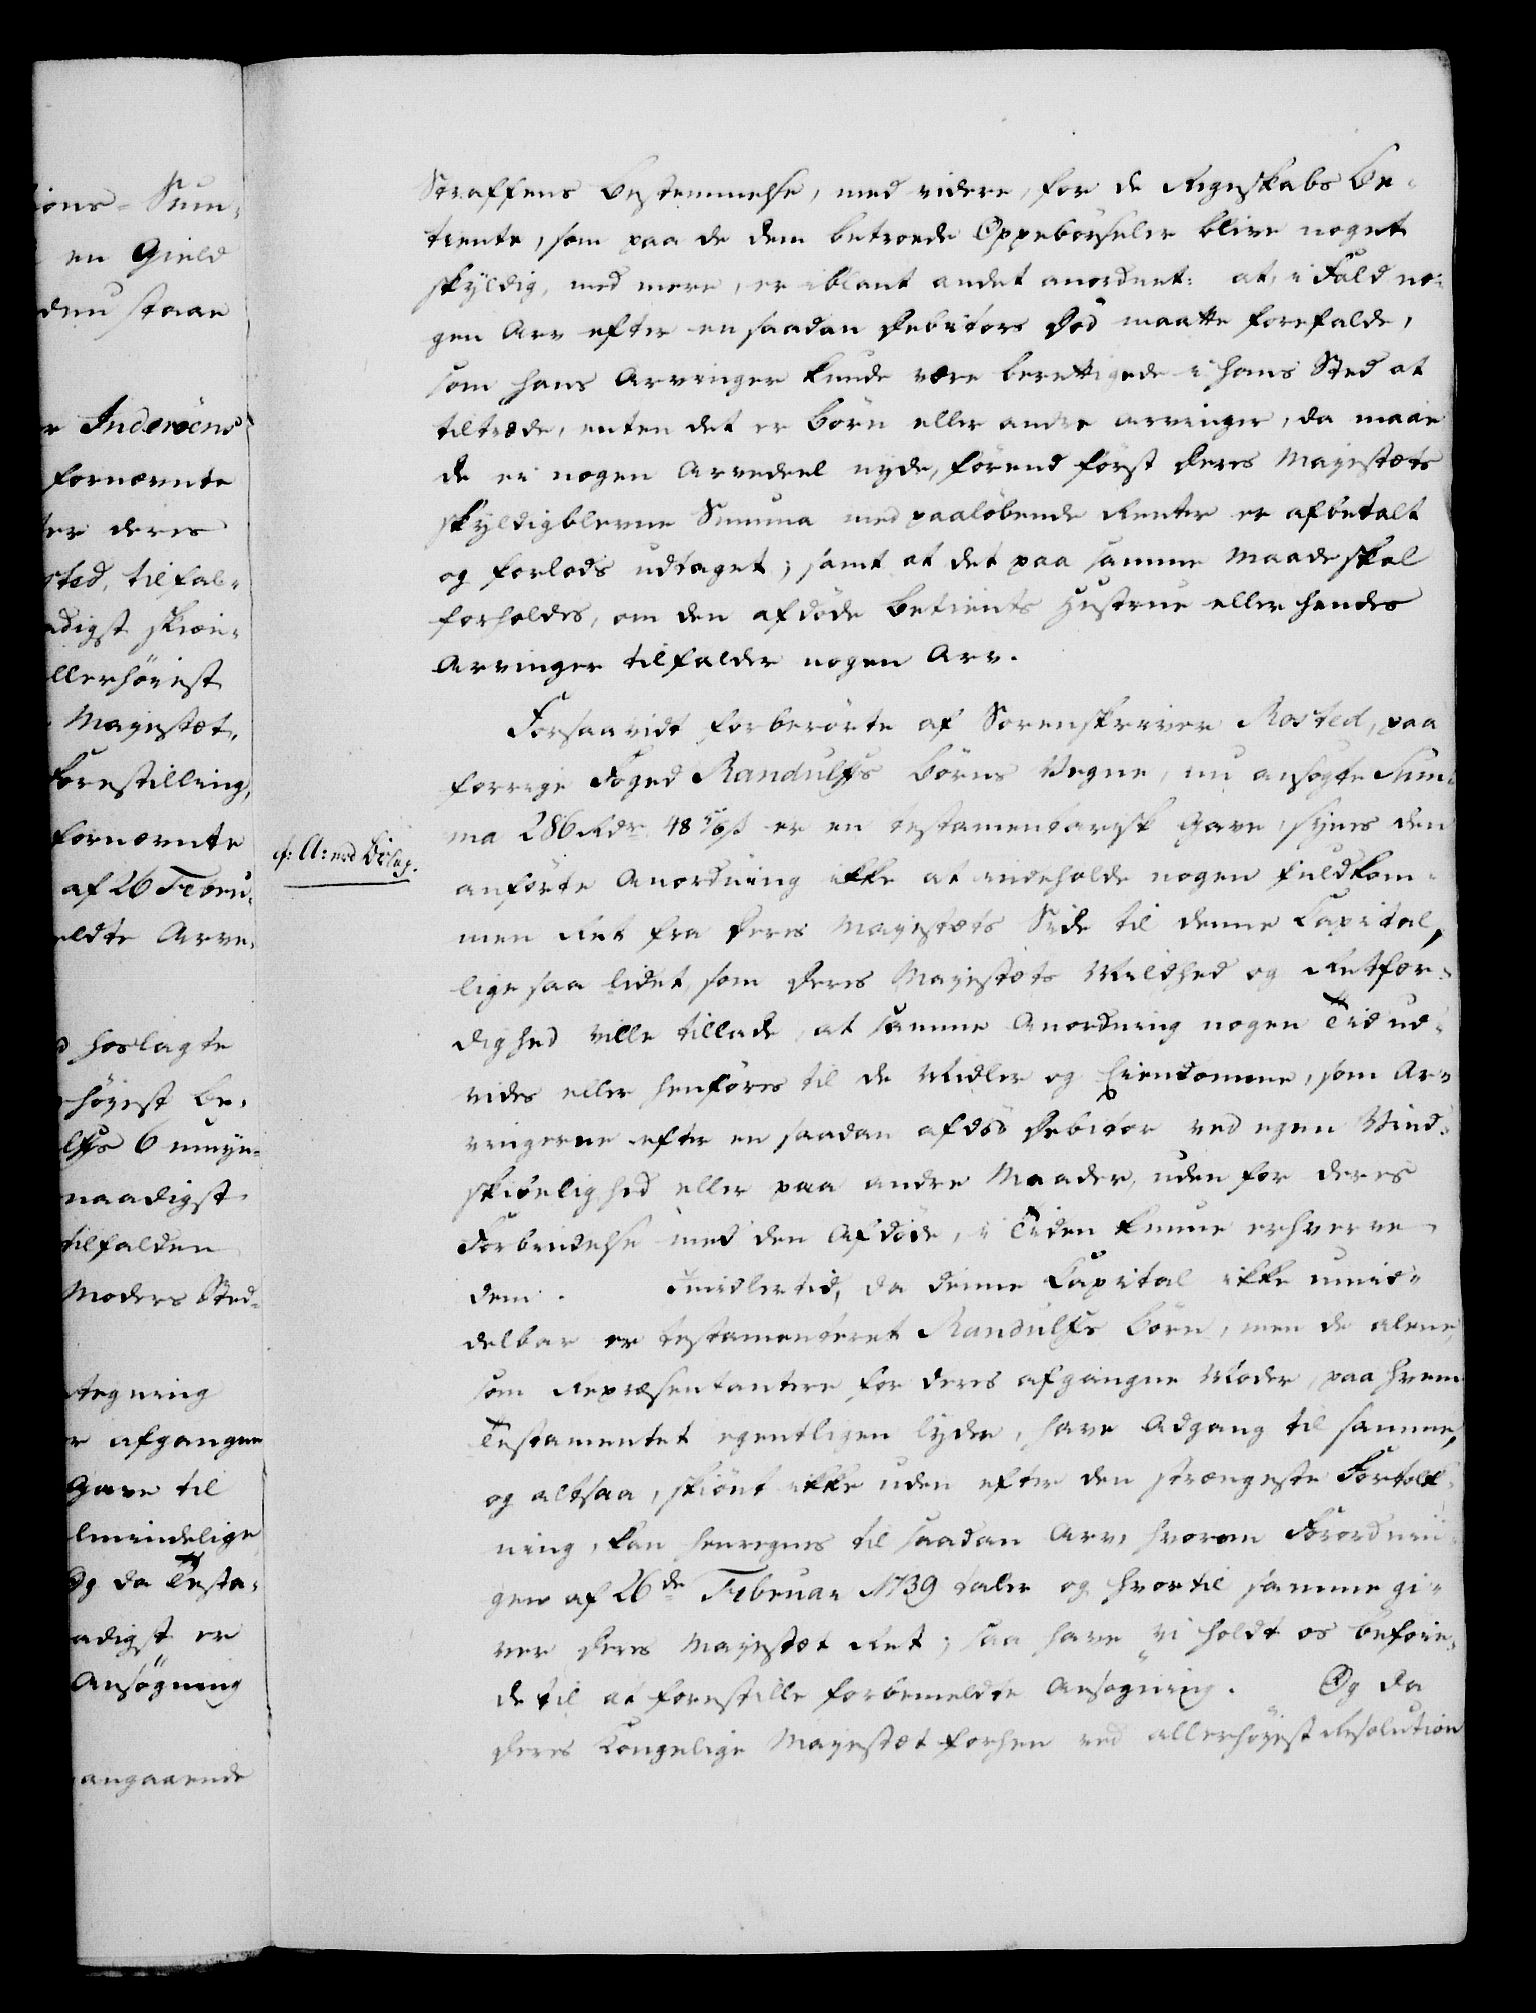 ions-Sum-
en Gield
denu staae
r Inderöens
fornævnte
ter deres
sted, tilfal-
adigst skiön-
llerhöiest
Mayestæt,
Forestilling,
fornævnte
af 26 Febru-
eldte Arve-
d hoslagte
höiest be-
lffs 6 umyn-
naadigst
tilfalden
Moders Sted-
tegning
r afgangne
Gave til
lmindelige
Og da Testa-
adigst er
Ansögning
angaaende
Straffens Bestemmelse, med videre, for de Regnskabs Be-
tiente, som paa de dem betroede Oppebörseler blive noget
skyldig, med mere, er iblant andet anordnet: at, i Fald no-
gen Arv efter en saadan Debitors Död maatte forefalde,
som hans Arvinger kunde være berettigede i hans Sted at
tiltræde, enten det er Börn eller andre Arvinger, da maae
de ei nogen Arvedeel nyde, förend först Deres Mayestæts
skyldigblevne Summa med paalöbende Renter er afbetalt
og forlods udtaget; samt at det paa samme Maade skal
forholdes, om den afdöde Betients Hustrue eller hendes
Arvinger tilfalder nogen Arv.
Forsaavidt forberörte af Sorenskriver Rosted, paa
forrige Foged Randulffs Börns Vegne, nu ansögte Sum-
ma 286 Rdr 48 1/6 ß er en testamentarisk Gave, synes den
cf: A: med Bilag.
anförte Anordning ikke at indeholde nogen fuldkom-
men Ret fra Deres Mayestæts Side til denne Capital,
lige saa lidet, som Deres Mayestæts Mildhed og Retfær-
dighed ville tillade, at samme Anordning nogen Tid ud-
vides eller henföres til de Midler og Eiendomme, som Ar-
vingerne efter en saadan afdöd Debitor ved egen Vind-
skibelighed eller paa andre Maader, uden for deres
Forbindelse med den Afdöde, i Tiden kunne erhverve
dem. Imidlertid, da denne Capital ikke umid-
delbar er testamenteret Randulffs Börn, men de alene,
som Repræsentantere for deres afgangne Moder, paa hvem
Testamentet egentligen lyder, have Adgang til samme,
og altsaa, skiönt ikke uden efter den strængeste Fortolk-
ning, kan henregnes til saadan Arv, hvorom Forordnin-
gen af 26de Februar 1739 taler og hvortil samme gi-
ver Deres Mayestæt Ret; saa have vi holdt os beföie-
de til at forestille forbemeldte Ansögning. Og da
Deres Kongelige Mayestæt forhen ved allerhöiest Resolution